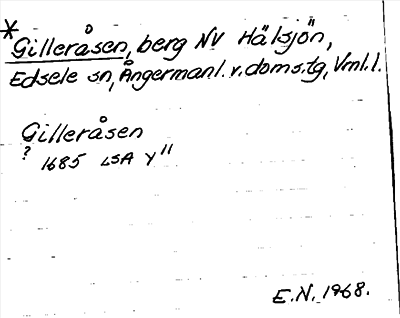 * Gilleråsen, berg NV Hälsjön,
Edsele sn, Ångermanl. v. doms.tg, Vml. l.
Gilleråsen
? 1685 LSA Y"
E.N. 1968.